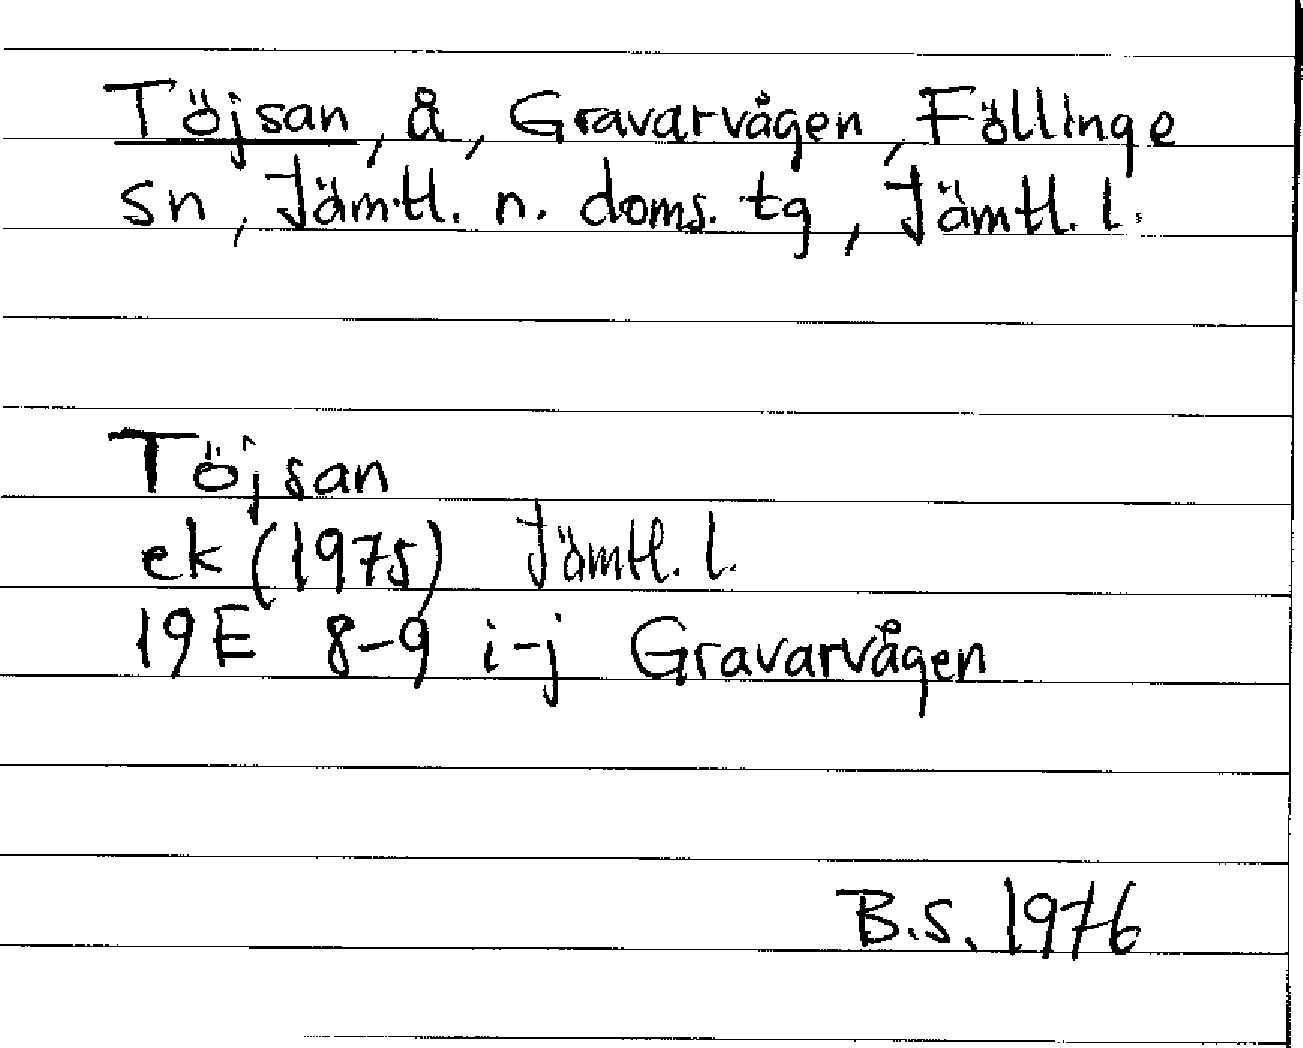 Töjsan, å, Gravarvågen, Föllinge
sn, Jämtl. n. doms. tg, Jämtl. l.
Töjsan
ek (1975) Jämtl. l.
19E 8-9 i-j Gravarvågen
B.S. 1976